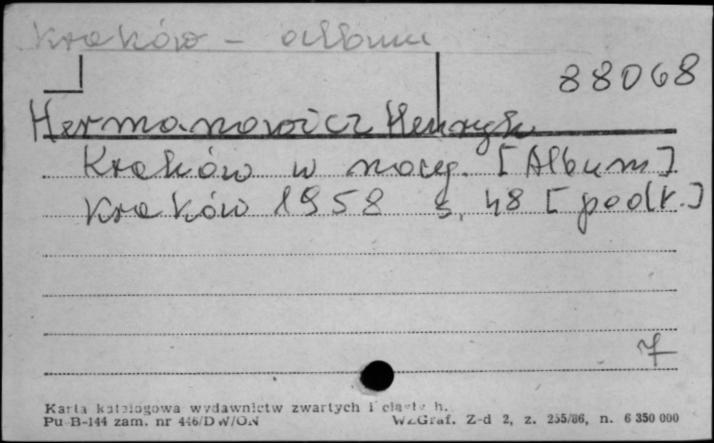 Kraków – album
88068
Hermanowicz Henryk
Kraków w nocy. [Album]
Kraków 1958 s. 48 [podł.]
7
Karta katalogowa wydawnictw zwartych i ciągłych.
Pu B-144 zam. nr 446/DW/ON WZGraf. Z-d 2, z. 255/86, n. 6 350 000